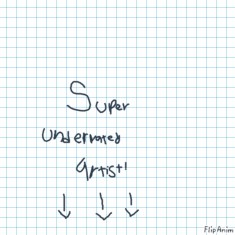 Super
underrated
artist!
FlipAnim